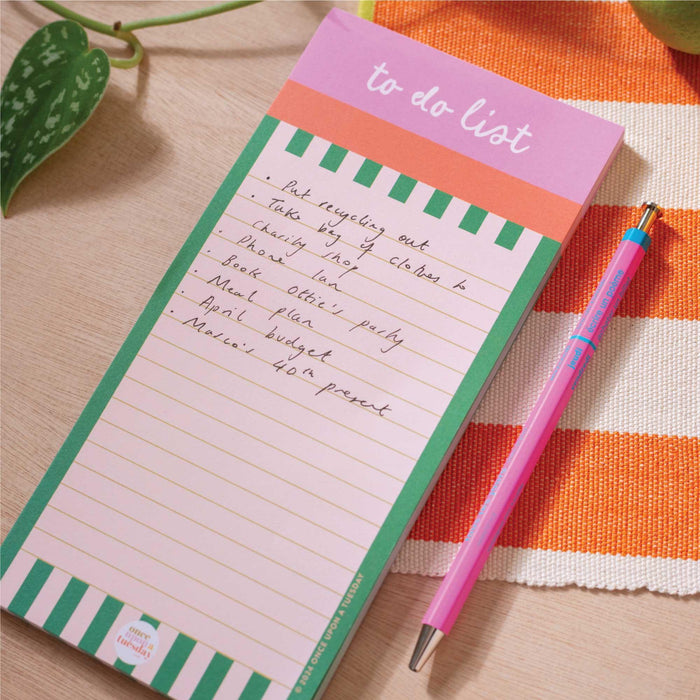 to do list
• Put recycling out
• Take bag of clothes to
Charity shop
• Phone Ian
• Book Ottie's party
• Meal plan
• April budget
• Marco's 40th present
once
upon a
tuesday
© 2024 ONCE UPON A TUESDAY
jeudi